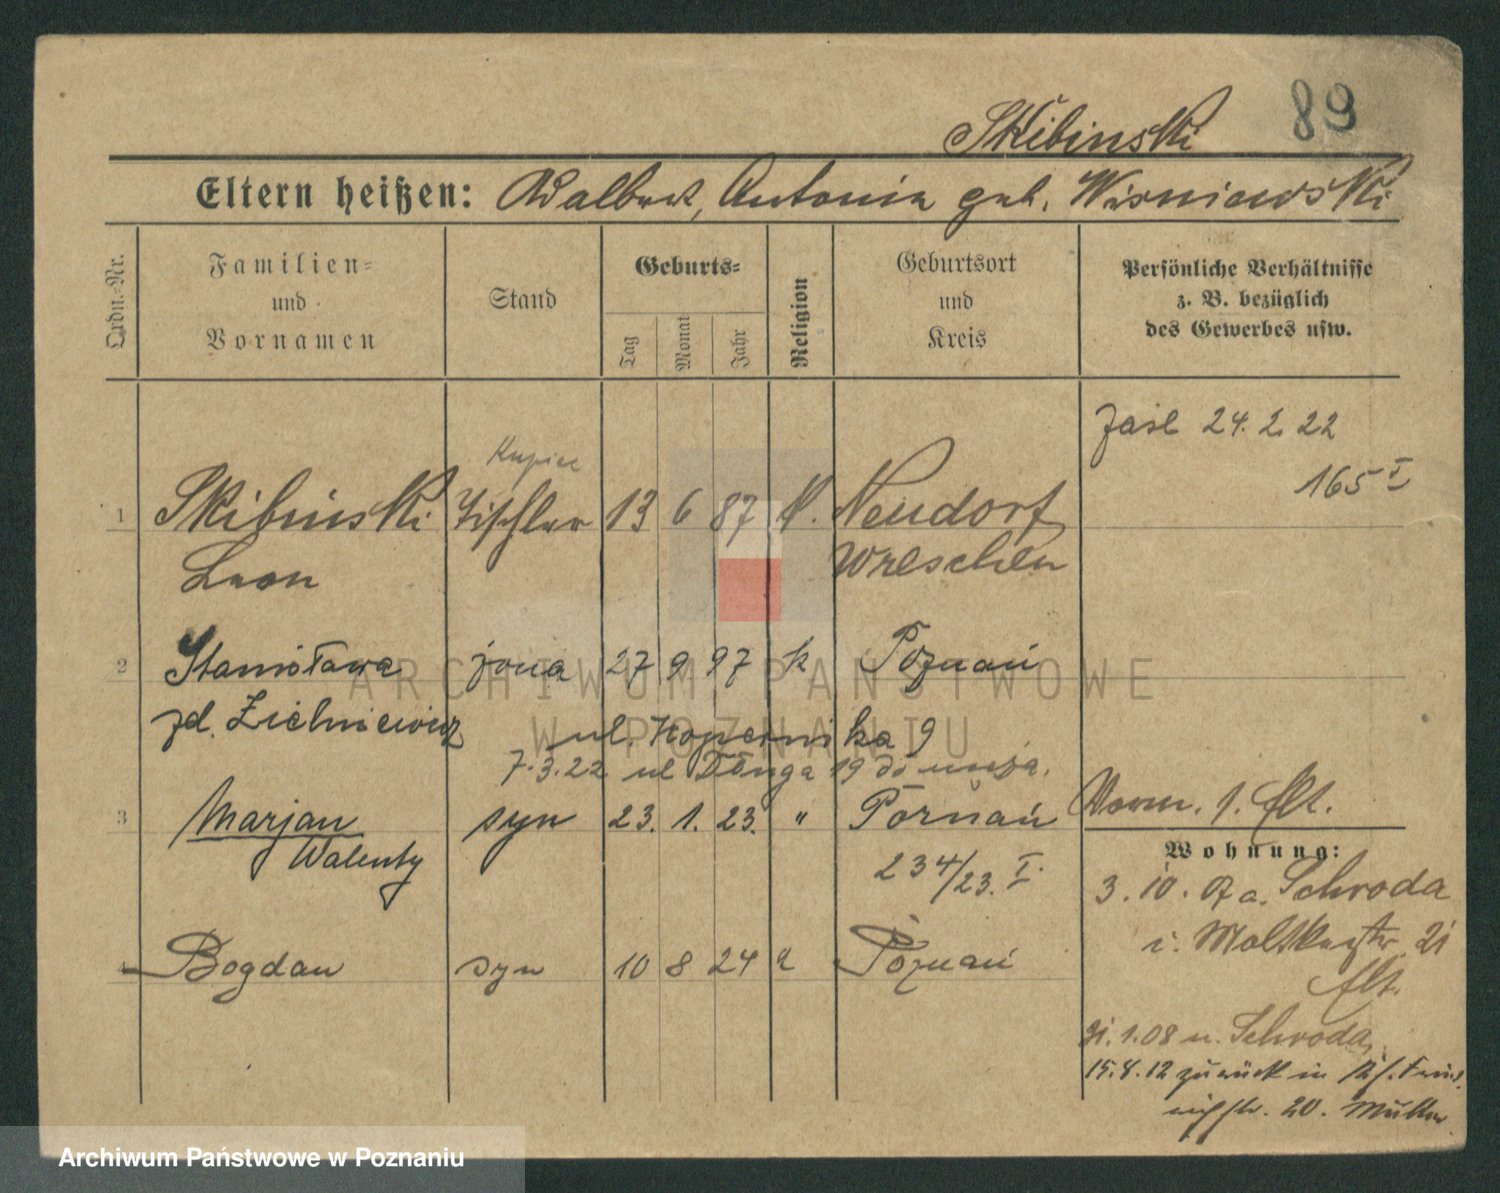 89
Skibinski
Eltern heißen: Adalbert, Antonia geb. Wisniewski
Ordn.-Nr.
Familien-
und
Vornamen
Stand
Geburts-
Tag
Monat
Jahr
Religion
Geburtsort
und
Kreis
Persönliche Verhältnisse
z. B. bezüglich
des Gewerbes usw.
24. 2 22
165 I
Kupiec
1 Skibinski Tischler 13 6 87 k. Neudorf
Leon Wreschen
2 Stanisława żona 27 9 97 k Poznań
zd. Zielniewicz
ul. Kopernika 9
7.3.22 ul Długa 19
3 Marjan syn 23. 1. 23. " Poznań
Walenty
234/23. I.
Wohnung:
3. 10. 07 a. Schroda
4 Bogdan syn 10 8 24 Poznań
1.08 n. Schroda
15.8.12 zurück in
20. Müller
ARCHIWUM PAŃSTWOWE
W POZNANIU
Archiwum Państwowe w Poznaniu